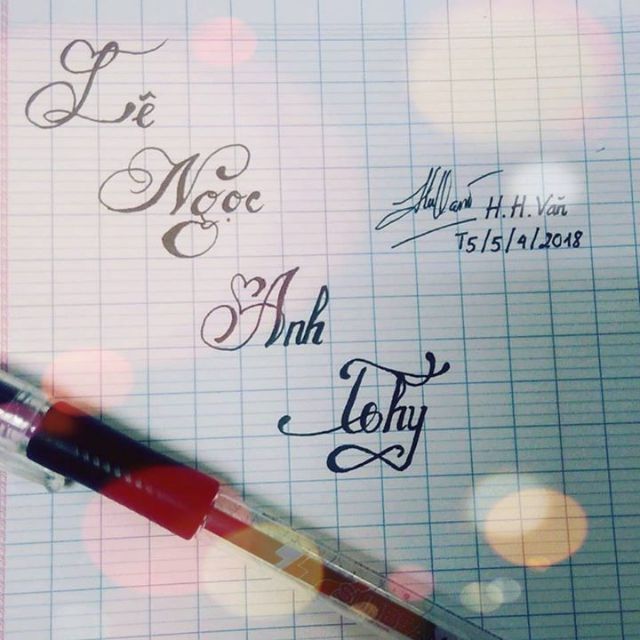 Lê
Ngọc
Anh
Tohy
H.H.Văn
T5/5/4/2018